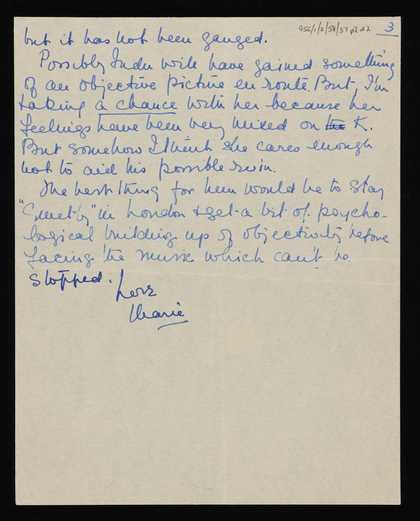 956/1/2/58/57 p2 22
3
but it has not been gauged.
Possibly Indu will have gained something
of an objective picture en route. But, I'm
taking a chance with her because her
feelings have been very mixed on K.
But somehow I think she cares enough
not to aid his possible ruin.
The best thing for him would be to stay
"quietly" in London & get a bit of psycho-
logical building up of objectivity before
facing the music which can't be
stopped.
Love
Marie